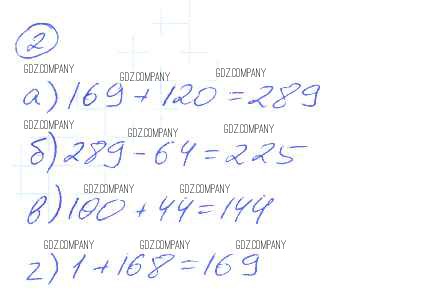 2
GDZ.COMPANY GDZ.COMPANY GDZ.COMPANY
а) 169 + 120 = 289
GDZ.COMPANY GDZ.COMPANY GDZ.COMPANY
б) 289 - 64 = 225
GDZ.COMPANY GDZ.COMPANY
в) 100 + 44 = 144
GDZ.COMPANY GDZ.COMPANY GDZ.COMPANY
г) 1 + 168 = 169